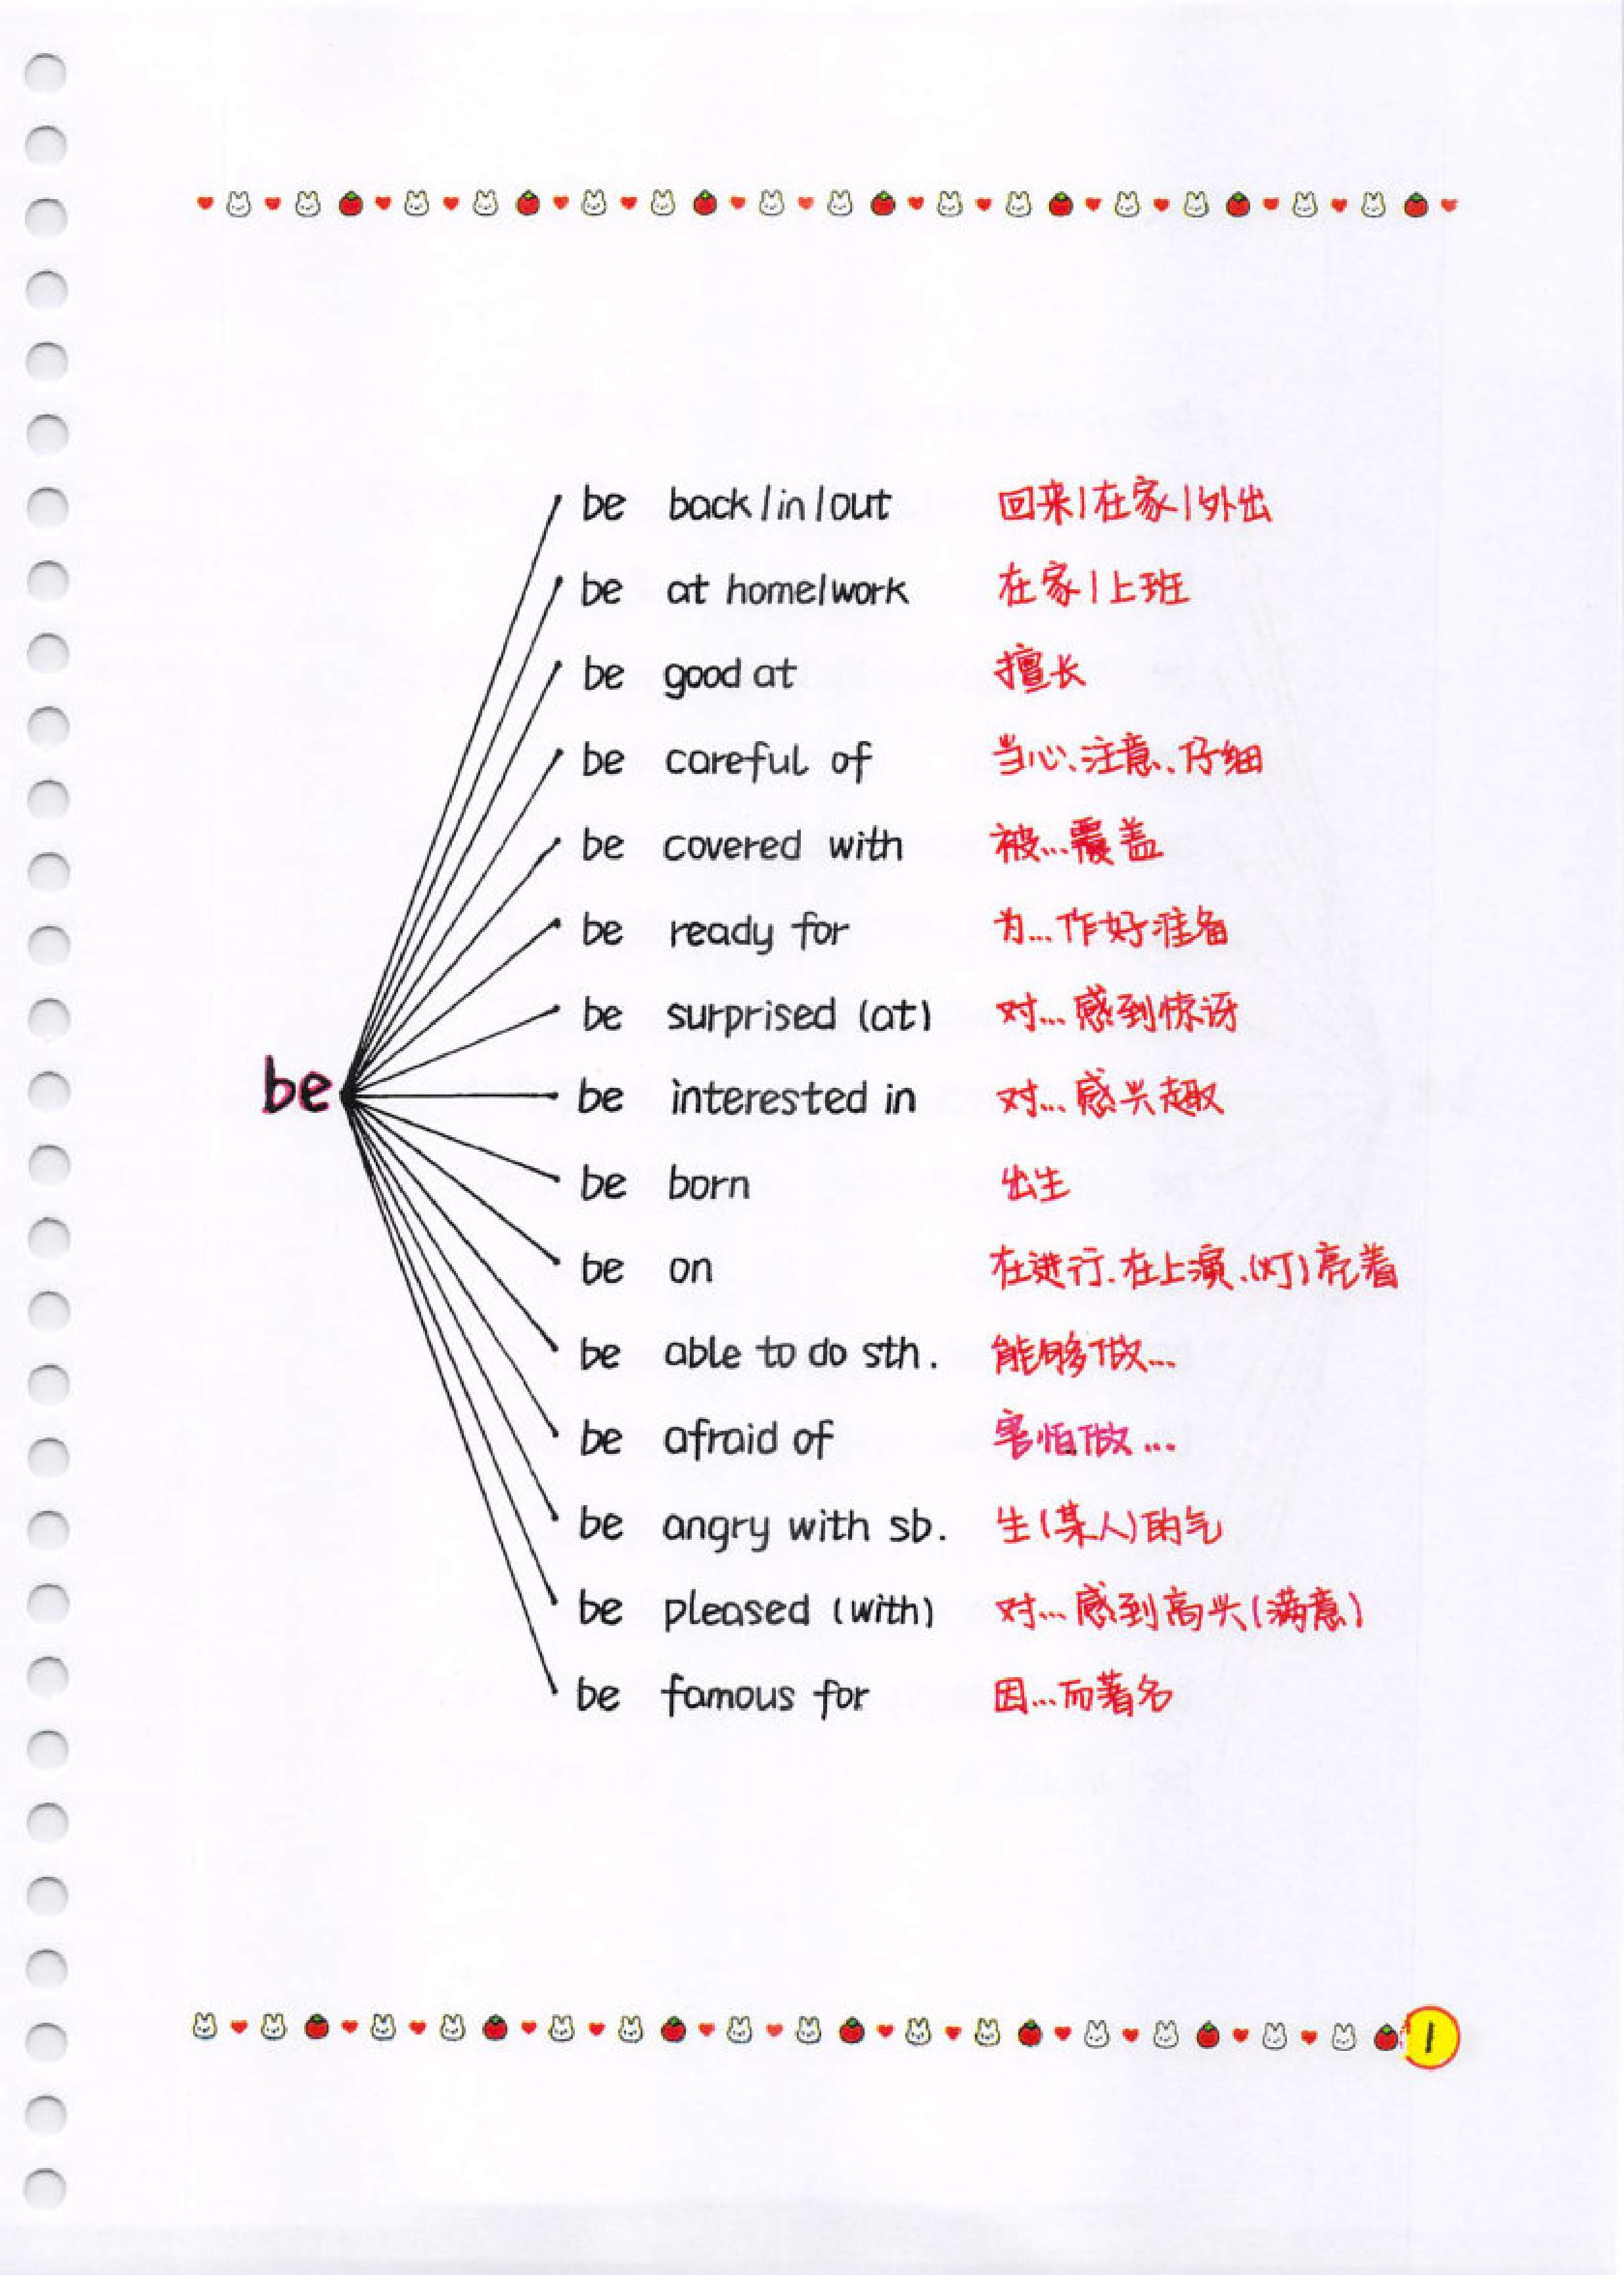 be back/in/out 回来/在家/外出
be at home/work 在家/上班
be good at 擅长
be careful of 当心、注意、仔细
be covered with 被...覆盖
be ready for 为...作好准备
be surprised (at) 对...感到惊讶
be
be interested in 对...感兴趣
be born 出生
be on 在进行、在上演、(灯)亮着
be able to do sth. 能够做...
be afraid of 害怕做...
be angry with sb. 生(某人)的气
be pleased (with) 对...感到高兴(满意)
be famous for 因...而著名
1